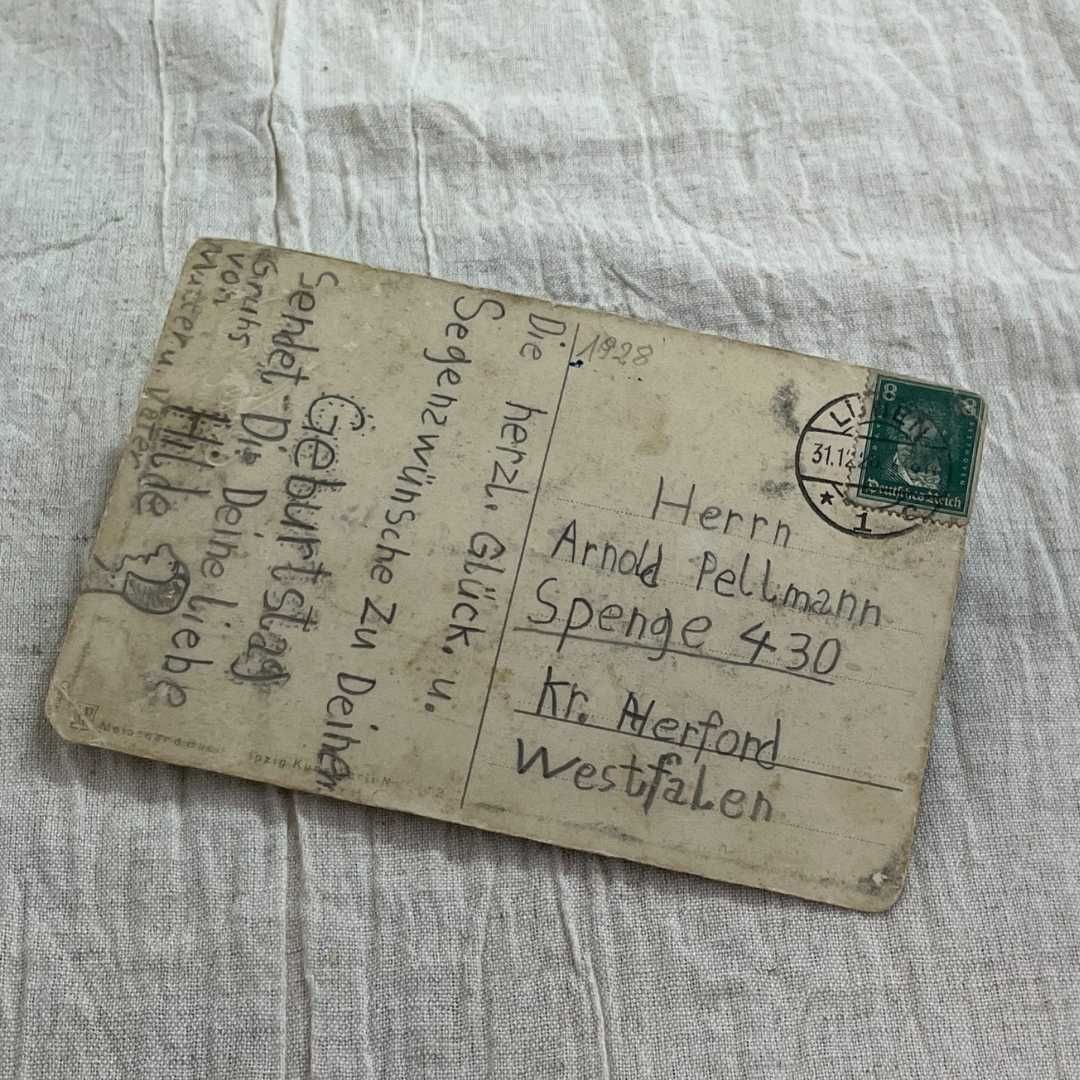 Die herzl. Glück. u.
Segenzwünsche zu Deinen
Geburtstag
sendet Dir Deine liebe
Hilde
Gruhs
von
Mutter u. Vater
1928
8
Deutsches Reich
31.12
1
Herrn
Arnold Pellmann
Spenge 430
Kr. Herford
Westfalen